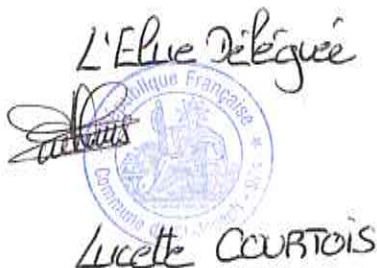 L'Elue Déléguée
République Française
Commune d'
Lucette COURTOIS